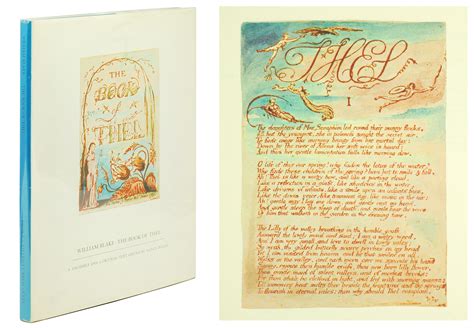 THE
BOOK
of
THEL
WILLIAM BLAKE · THE BOOK OF THEL
A FACSIMILE AND A CRITICAL TEXT EDITED BY NANCY BOGEN
THEL
I
The daughters of Mne Seraphim led round their sunny flocks,
All but the youngest; she in paleness sought the secret air.
To fade away like morning beauty from her mortal day:
Down by the river of Adona her soft voice is heard:
And thus her gentle lamentation falls like morning dew.
O life of this our spring! why fades the lotus of the water?
Why fade these children of the spring? born but to smile & fall.
Ah! Thel is like a watry bow, and like a parting cloud,
Like a reflection in a glass, like shadows in the water,
Like dreams of infants, like a smile upon an infants face,
Like the doves voice, like transient day, like music in the air:
Ah! gentle may I lay me down, and gentle rest my head,
And gentle sleep the sleep of death, and gentle hear the voice
Of him that walketh in the garden in the evening time.
The Lilly of the valley breathing in the humble grass
Answer'd the lovely maid and said: I am a watry weed,
And I am very small, and love to dwell in lowly vales:
So weak, the gilded butterfly scarce perches on my head
Yet I am visited from heaven and he that smiles on all
Walks in the valley, and each morn over me spreads his hand
Saying, rejoice thou humble grass, thou new-born lilly flower,
Thou gentle maid of silent valleys and of modest brooks:
For thou shalt be clothed in light, and fed with morning manna:
Till summers heat melts thee beside the fountains and the springs
To flourish in eternal vales: then why should Thel complain,
Why